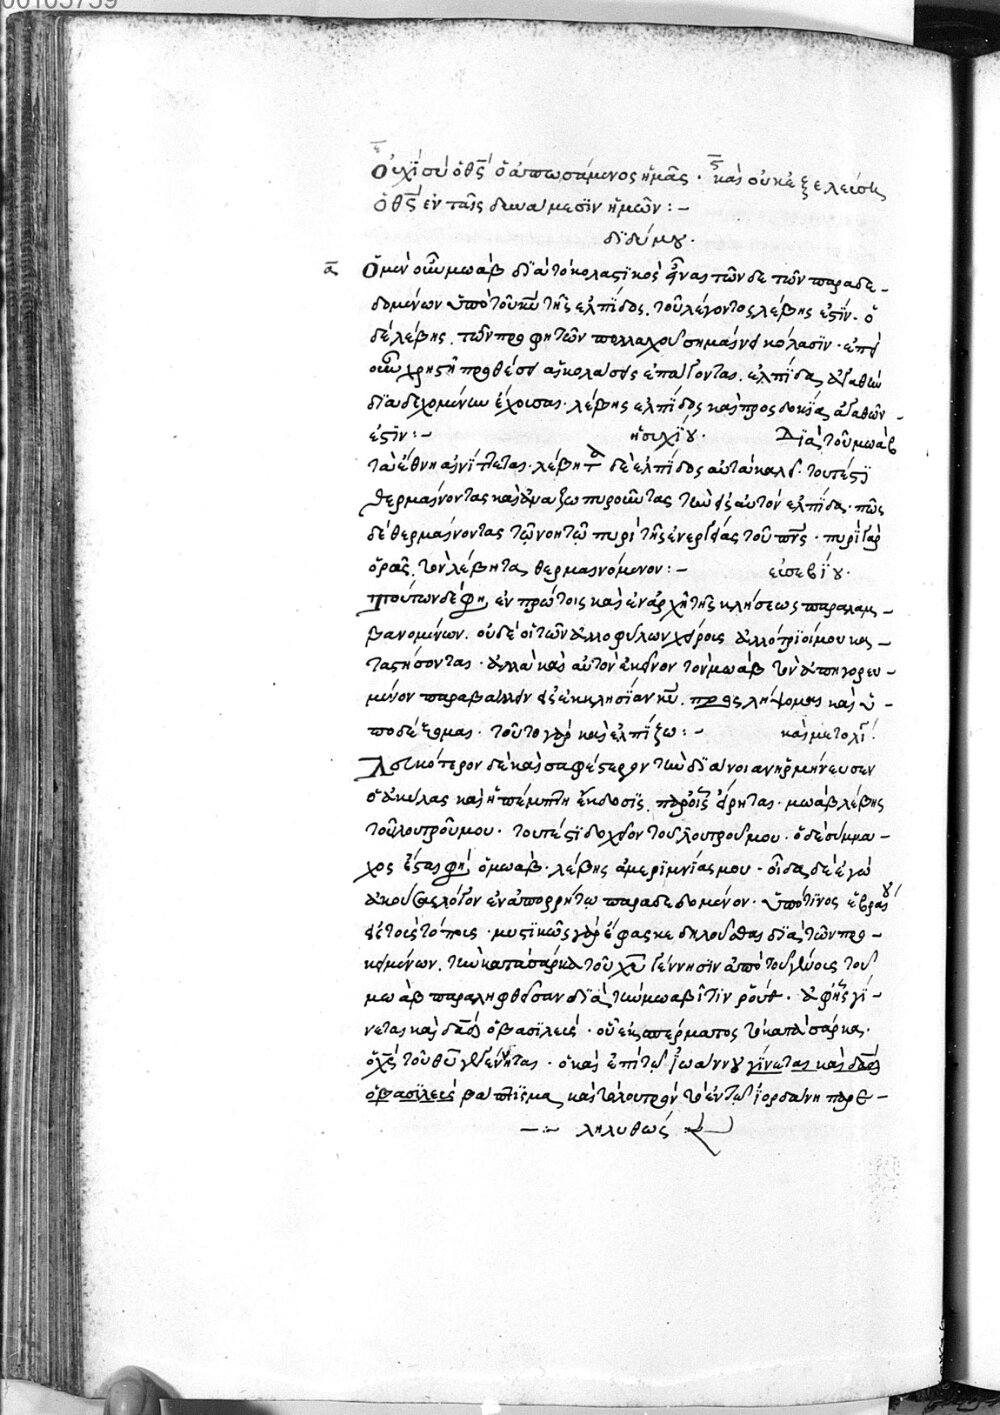 00105759
ε Οὐχὶ σὺ ὁ θς ὁ ἀπωσάμενος ἡμᾶς · ς καὶ οὐκ ἐξελεύση
ὁ θς ἐν ταῖς δυνάμεσιν ἡμῶν : –
διδύμου.
α Ὁ μὲν οὖν μωὰβ διὰ τὸ κολαστικὸς εἶναι τῶν δε τῶν παραδε –
δομένων ὑπὸ τοῦ κυ τῆς ἐλπίδος, τοῦ λέγοντος λέβης ἐστίν · ὁ
δὲ λέβης, τῶν προφητῶν πολλαχοῦ σημαίνει κόλασιν · ἐπεὶ
οὖν χρηστῇ προθέσει αἱ κολάσεις ἐπάγονται, ἐλπίδας ἀγαθῶν
διαδεχομένων ἔχουσαι · λέβης ἐλπίδος καὶ προσδοκίας ἀγαθῶν –
ἐστίν : – ἡσυχίου. Διὰ τοῦ μωὰβ
τὰ ἔθνη αἰνίττεται · λέβητα δὲ ἐλπίδος αὐτὰ καλεῖ · τουτέστι
θερμαίνοντας καὶ πυροῦντας τὴν εἰς αὐτὸν ἐλπίδα · πῶς
δὲ θερμαίνονται τῷ νοητῷ πυρὶ τῆς ἐνεργείας τοῦ πνς · πυρὶ γὰρ
ὁρᾷς, τὸν λέβητα, θερμαινόμενον : – εὐσεβίου.
τούτων δέ φη, ἐν πρώτοις καὶ ἐν ἀρχῇ τῆς κλήσεως παραλαμ –
βανομένων, οὐδὲ οἱ τῶν ἀλλοφύλων χεῖρους ἀλλότριοί μου κα –
ταστήσονται · ἀλλὰ καὶ αὐτὸν ἐκεῖνον τὸν μωὰβ τὸν ἀπηγορευ –
μένον παραβάλλειν εἰς ἐκκλησίαν κυ, προσλήψομαι καὶ ὑ –
ποδέξομαι · τοῦτο γὰρ καὶ ἐλπίζω : – καὶ μετ ὀλί
λευκότερον δὲ καὶ σαφέστερον τὴν διάνοιαν ἡρμήνευσεν
ὁ ἀκύλας καὶ ἡ πέμπτη ἔκδοσις, παρ οἷς εἴρηται · μωὰβ λέβης
τοῦ λουτροῦ μου · τουτέστι δοχεῖον τοῦ λουτροῦ μου · ὁ δὲ σύμμα –
χος ἔστι φη, ὁ μωὰβ · λέβης ἀμεριμνίας μου · οἶδα δὲ ἐγὼ
ἀκούσας λόγον ἐν ἀπορρήτῳ παραδεδομένον · ὑπό τινος ἑβραίου
εἰς τοὺς τόπους · μυστικῶς γὰρ ἔφασκε δηλοῦσθαι διὰ τῶν προ –
κειμένων, τὴν κατὰ σάρκα τοῦ χυ γέννησιν ἀπὸ τοῦ γένους τοῦ
μωὰβ παραληφθεῖσαν διὰ τὴν μωαβίτιν ῥοὺθ · ἀφ ἧς γί –
νεται καὶ δαδ ὁ βασιλεύς · οὗ ἐκ σπέρματος τὸ κατὰ σάρκα ·
ὁ χς τοῦ θυ γεγένηται · ὁ καὶ ἐπὶ τῷ ἰωάννου γίνεται καὶ δαδ
ὁ βασιλεὺς βάπτισμα, καὶ τὸ λουτρὸν τὸ ἐν τῷ ἰορδάνῃ παρε –
– : – ληλυθώς